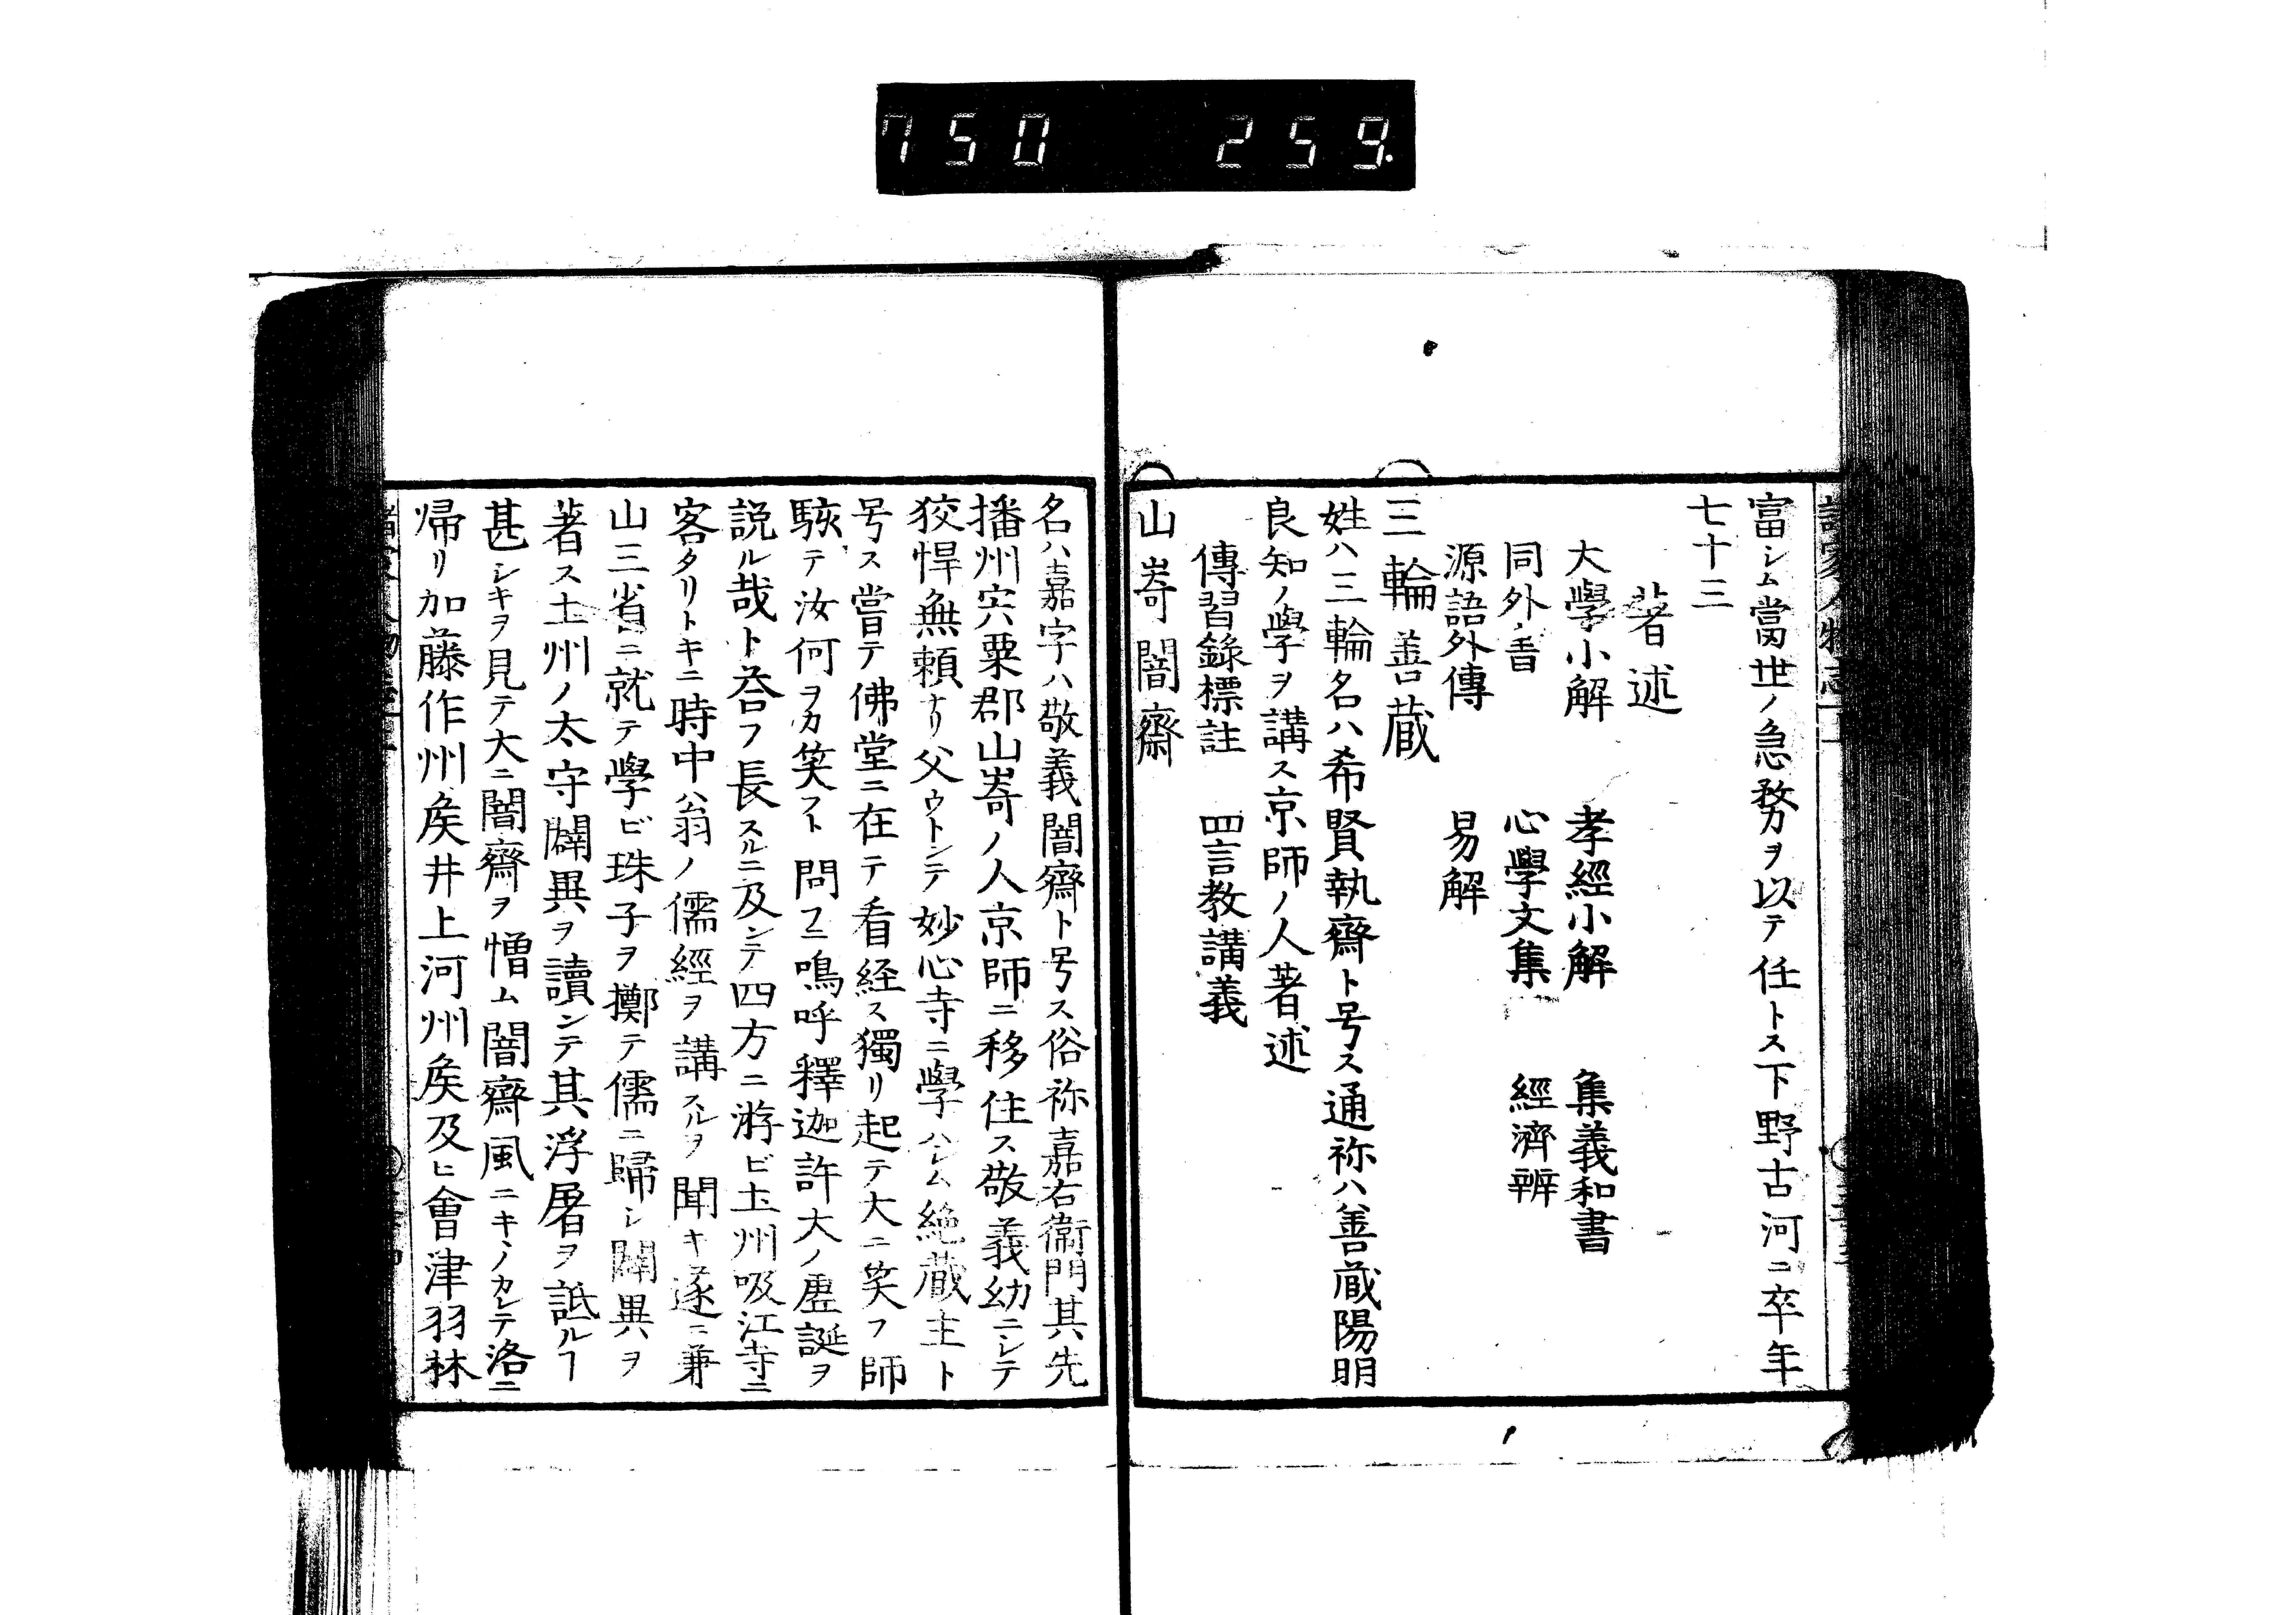 750 259.
富シム當世ノ急務ヲ以テ任トス下野古河ニ卒年
七十三
著述
大學小解 孝經小解 集義和書
同外書 心學文集 經濟辨
源語外傳 易解
三輪善蔵
姓ハ三輪名ハ希賢執齋ト号ス通祢ハ善蔵陽明
良知ノ學ヲ講ス京師ノ人著述
傳習錄標註 四言教講義
山嵜闇齋
名ハ嘉字ハ敬義闇齋ト号ス俗祢嘉右衛門其先
播州宍粟郡山嵜ノ人京師ニ移住ス敬義幼ニシテ
狡悍無頼ナリ父ウトンテ妙心寺ニ學ハシム絶蔵主ト
号ス嘗テ佛堂ニ在テ看経ス獨リ起テ大ニ笑フ師
駭テ汝何ヲカ笑フト問フニ鳴呼釋迦許大ノ虚誕ヲ
説ル哉ト荅フ長スルニ及ンテ四方ニ游ビ土州吸江寺ニ
客タリトキニ時中ハ翁ノ儒經ヲ講スルヲ聞キ遂ニ兼
山三省ニ就テ學ビ珠子ヲ擲テ儒ニ歸シ闢異ヲ
著ス土州ノ太守闢異ヲ讀ンテ其浮屠ヲ詆ルヿ
甚シキヲ見テ大ニ闇齋ヲ憎ム闇齋風ニキヽノカレテ洛ニ
帰リ加藤作州矦井上河州矦及ヒ會津羽林